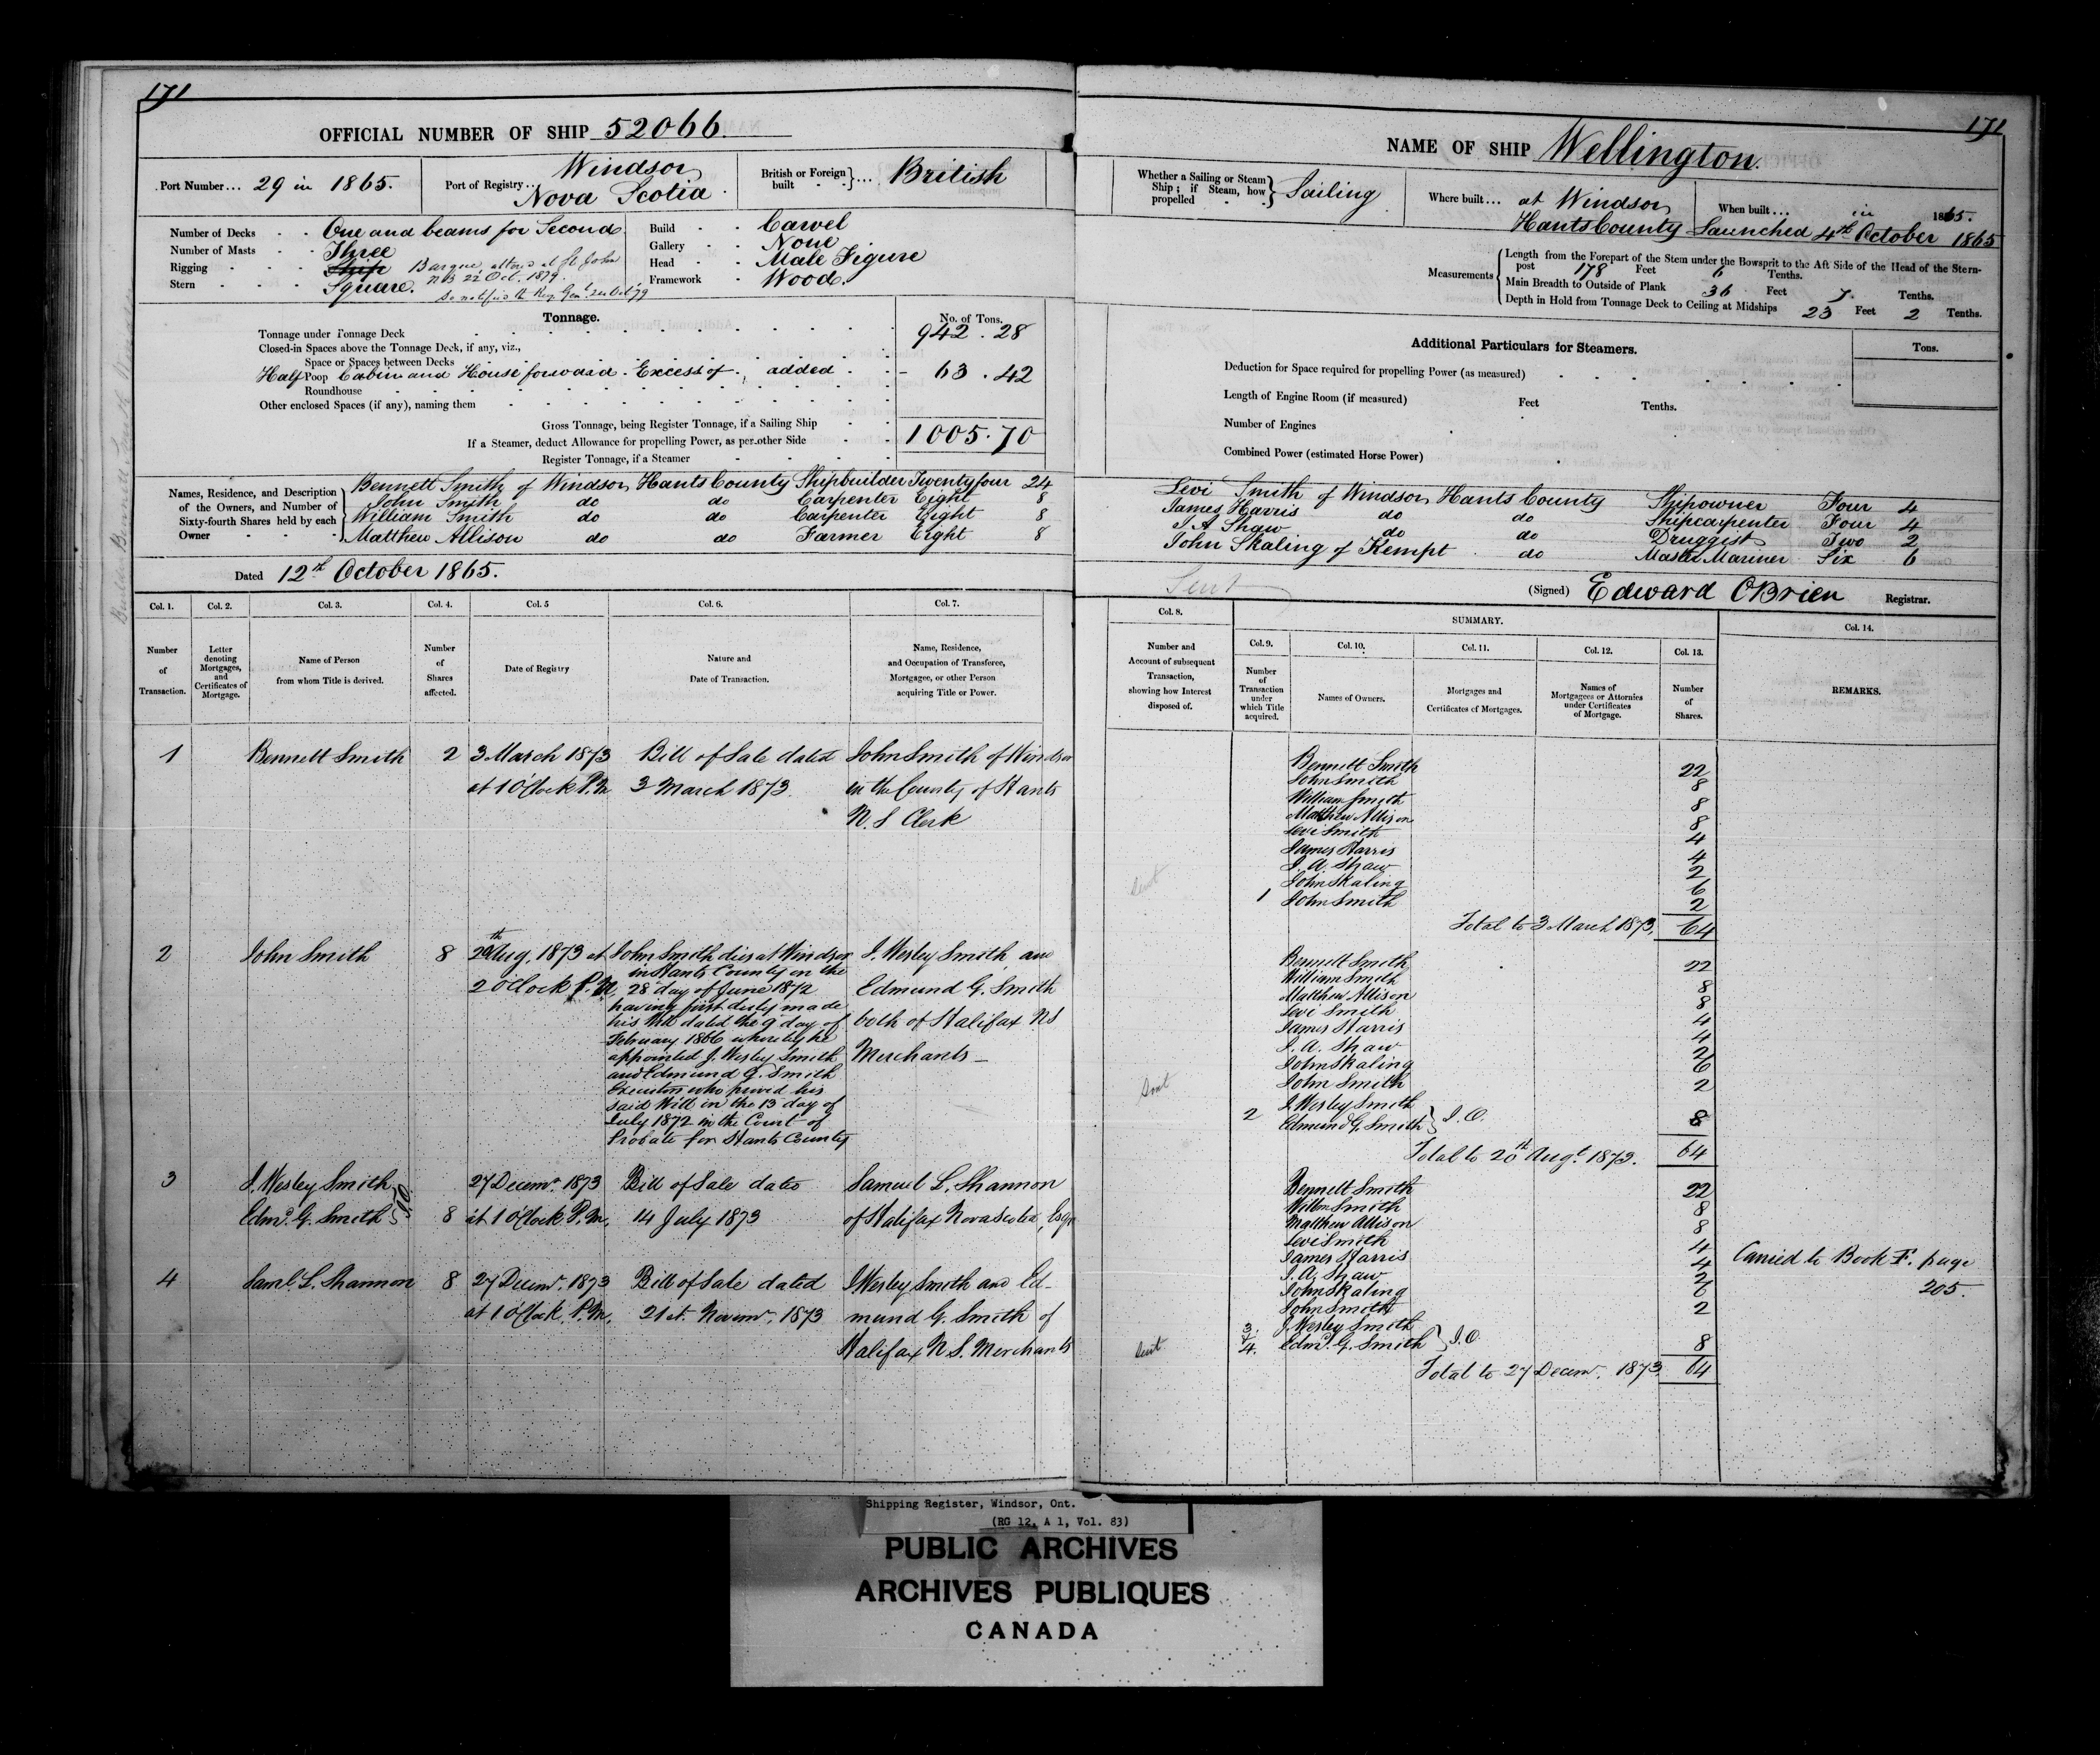 171
OFFICIAL NUMBER OF SHIP 52066.
Port Number... 29 in 1865.
Port of Registry... Windsor Nova Scotia
British or Foreign built } ... British
Number of Decks One and beams for Second
Number of Masts Three
Rigging Ship Barque, altered at St John
NB 22 Oct. 1879.
Stern Square. So notified to Reg Genl 24 Oct 79
Build Carvel
Gallery None
Head Male Figure
Framework Wood
Tonnage. No. of Tons.
Tonnage under Tonnage Deck 942.28
Closed-in Spaces above the Tonnage Deck, if any, viz.,
Space or Spaces between Decks
Half Poop Cabin and House forward. Excess of added 63.42
Roundhouse
Other enclosed Spaces (if any), naming them
Gross Tonnage, being Register Tonnage, if a Sailing Ship 1005.70
If a Steamer, deduct Allowance for propelling Power, as per other Side
Register Tonnage, if a Steamer
Names, Residence, and Description of the Owners, and Number of Sixty-fourth Shares held by each Owner
Bennett Smith of Windsor Hants County Shipbuilder Twentyfour 24
John Smith do do Carpenter Eight 8
William Smith do do Carpenter Eight 8
Matthew Allison do do Farmer Eight 8
Dated 12th October 1865.
Col. 1. Col. 2. Col. 3. Col. 4. Col. 5 Col. 6. Col. 7.
Number of Transaction.
Letter denoting Mortgages, and Certificates of Mortgage.
Name of Person from whom Title is derived.
Number of Shares affected.
Date of Registry
Nature and Date of Transaction.
Name, Residence, and Occupation of Transferee, Mortgagee, or other Person acquiring Title or Power.
1 Bennett Smith 2 3 March 1873 Bill of Sale dated John Smith of Windsor
at 1 O'Clock P.M. 3 March 1873. in the County of Hants
N.S Clerk
2 John Smith 8 20th Aug. 1873 at
2 O'Clock P.M.
John Smith died at Windsor
in Hants County on the
28 day of June 1872
having first duly made
his Will dated the 9 day of
February 1866 whereby he
appointed J. Wesley Smith
and Edmund G. Smith
Executors who proved his
said Will in the 13 day of
July 1872 in the Court of
Probate for Hants County
J. Wesley Smith and
Edmund G. Smith
both of Halifax NS
Merchants
3 J. Wesley Smith 27 Decemr. 1873 Bill of Sale dated Samuel L. Shannon
Edmd. G. Smith } JO 8 at 1 O'Clock P.M. 14 July 1873 of Halifax Nova Scotia, Esqr
4 Saml. L. Shannon 8 27 Decemr. 1873 Bill of Sale dated J. Wesley Smith and Ed-
at 1 O'Clock P.M. 21st. Novemr. 1873 mund G. Smith of
Halifax N.S. Merchants
171
NAME OF SHIP Wellington.
Whether a Sailing or Steam Ship; if Steam, how propelled } Sailing
Where built... at Windsor
Hants County
When built... in 1865.
Launched 4th October 1865
Measurements
Length from the Forepart of the Stem under the Bowsprit to the Aft Side of the Head of the Stern-
post 178 Feet 6 Tenths.
Main Breadth to Outside of Plank 36 Feet 7 Tenths.
Depth in Hold from Tonnage Deck to Ceiling at Midships 23 Feet 2 Tenths.
Additional Particulars for Steamers. Tons.
Deduction for Space required for propelling Power (as measured)
Length of Engine Room (if measured) Feet Tenths.
Number of Engines
Combined Power (estimated Horse Power)
Levi Smith of Windsor Hants County Shipowner Four 4
James Harris do do Shipcarpenter Four 4
J A Shaw do do Druggist Two 2
John Skaling of Kempt do Master Mariner Six 6
Sent
(Signed) Edward OBrien Registrar.
Col. 8. SUMMARY. Col. 14.
Col. 9. Col. 10. Col. 11. Col. 12. Col. 13.
Number and Account of subsequent Transaction, showing how Interest disposed of.
Number of Transaction under which Title acquired.
Names of Owners.
Mortgages and Certificates of Mortgages.
Names of Mortgagees or Attornies under Certificates of Mortgage.
Number of Shares.
REMARKS.
Bennett Smith 22
John Smith 8
William Smith 8
Matthew Allison 8
Levi Smith 4
James Harris 4
J. A. Shaw 2
Sent John Skaling 6
1 John Smith 2
Total to 3 March 1873, 64
Bennett Smith 22
William Smith 8
Matthew Allison 8
Levi Smith 4
James Harris 4
J. A. Shaw 2
John Skaling 6
Sent John Smith 2
2 J. Wesley Smith
Edmund G. Smith } J.O. 8
Total to 20th Augt. 1873. 64
Bennett Smith 22
Willm Smith 8
Matthew Allison 8
Levi Smith 4
James Harris 4
J. A. Shaw 2
John Skaling 6
John Smith 2
3. & 4. J. Wesley Smith
Sent Edmd. G. Smith } J.O. 8
Total to 27 Decemr. 1873 64
Carried to Book F. page
205.
Shipping Register, Windsor, Ont.
(RG 12, A 1, Vol. 83)
PUBLIC ARCHIVES
ARCHIVES PUBLIQUES
CANADA